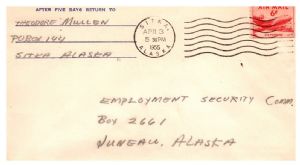 AFTER FIVE DAYS RETURN TO
THEODORE MULLEN
PO BOX 144
SITKA ALASKA
SITKA
APR 3
5 30 PM
1955
ALASKA
AIR MAIL
6¢
EMPLOYMENT SECURITY Comm.
BOX 2661
JUNEAU, ALASKA